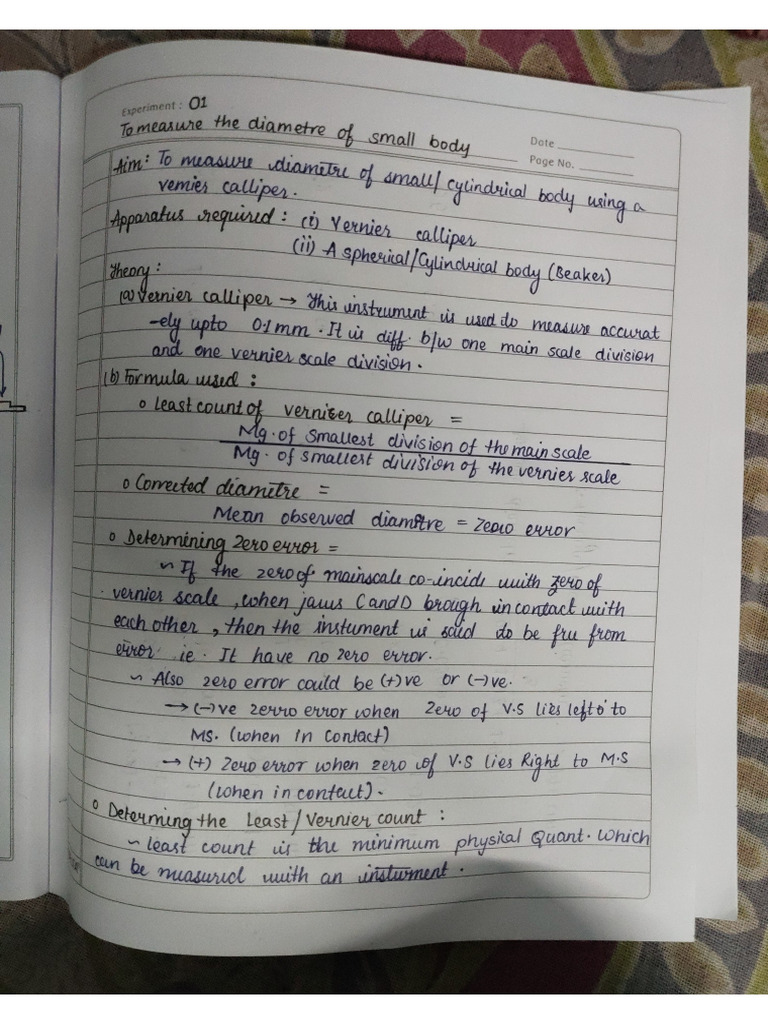 Experiment : 01
To measure the diametre of small body
Date
Page No.
Aim: To measure diametre of small/cylindrical body using a
vernier calliper.
Apparatus required : (i) Vernier calliper
(ii) A spherical/Cylindrical body (Beaker)
Theory :
(a) Vernier calliper → This instrument is used to measure accurat
-ely upto 0.1mm. It is diff. b/w one main scale division
and one vernier scale division.
(b) Formula used :
o Least count of verniser calliper =
Mg. of Smallest division of the main scale
Mg. of smallest division of the vernies scale
o Corrected diametre =
Mean observed diametre = Zero error
o Determining Zero error =
~ If the zero of mainscale co-incide with zero of
vernies scale, when jaws C and D brough in contact with
each other, then the instument is said to be fru from
error ie. It have no zero error.
~ Also zero error could be (+)ve or (-)ve.
→ (-)ve zerro error when Zero of V.S lies left to
MS. (when in contact)
→ (+) Zero error when zero of V.S lies Right to M.S
(when in contact).
o Determing the Least/Vernier count :
~ least count is the minimum physical Quant. which
can be measured with an insturment.